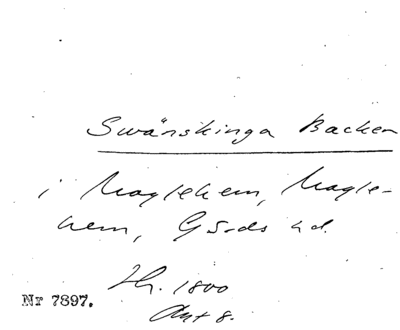 Swänskinga Backen
i Maglehem, Magle-
hem, Gärds hd.
Hr. 1800
Akt 8.
Nr 7897.